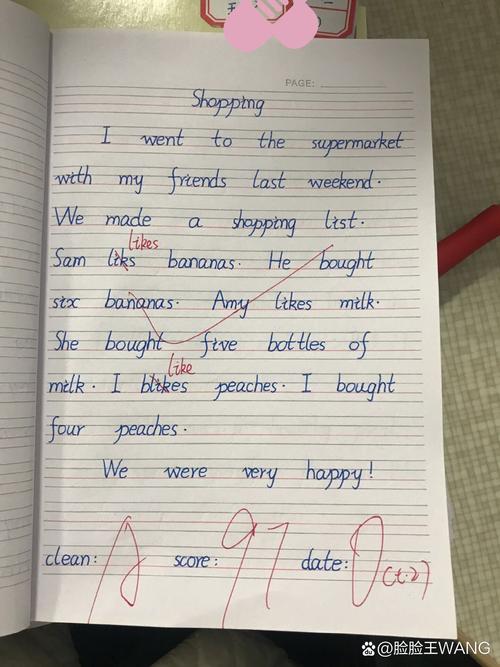 PAGE:
Shopping
I went to the supermarket
with my friends last weekend.
We made a shopping list.
likes
Sam liks bananas. He bought
six bananas. Amy likes milk.
She bought five bottles of
like
milk. I likes peaches. I bought
four peaches.
We were very happy!
clean: A score: 97 date:
@脸脸王WANG